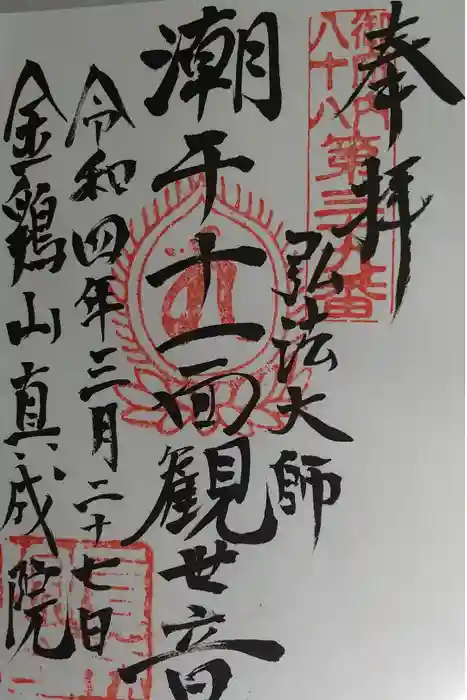 奉拝
御府内八十八第三十九番
弘法大師
潮干十一面観世音
令和四年三月二十七日
金鶏山真成院